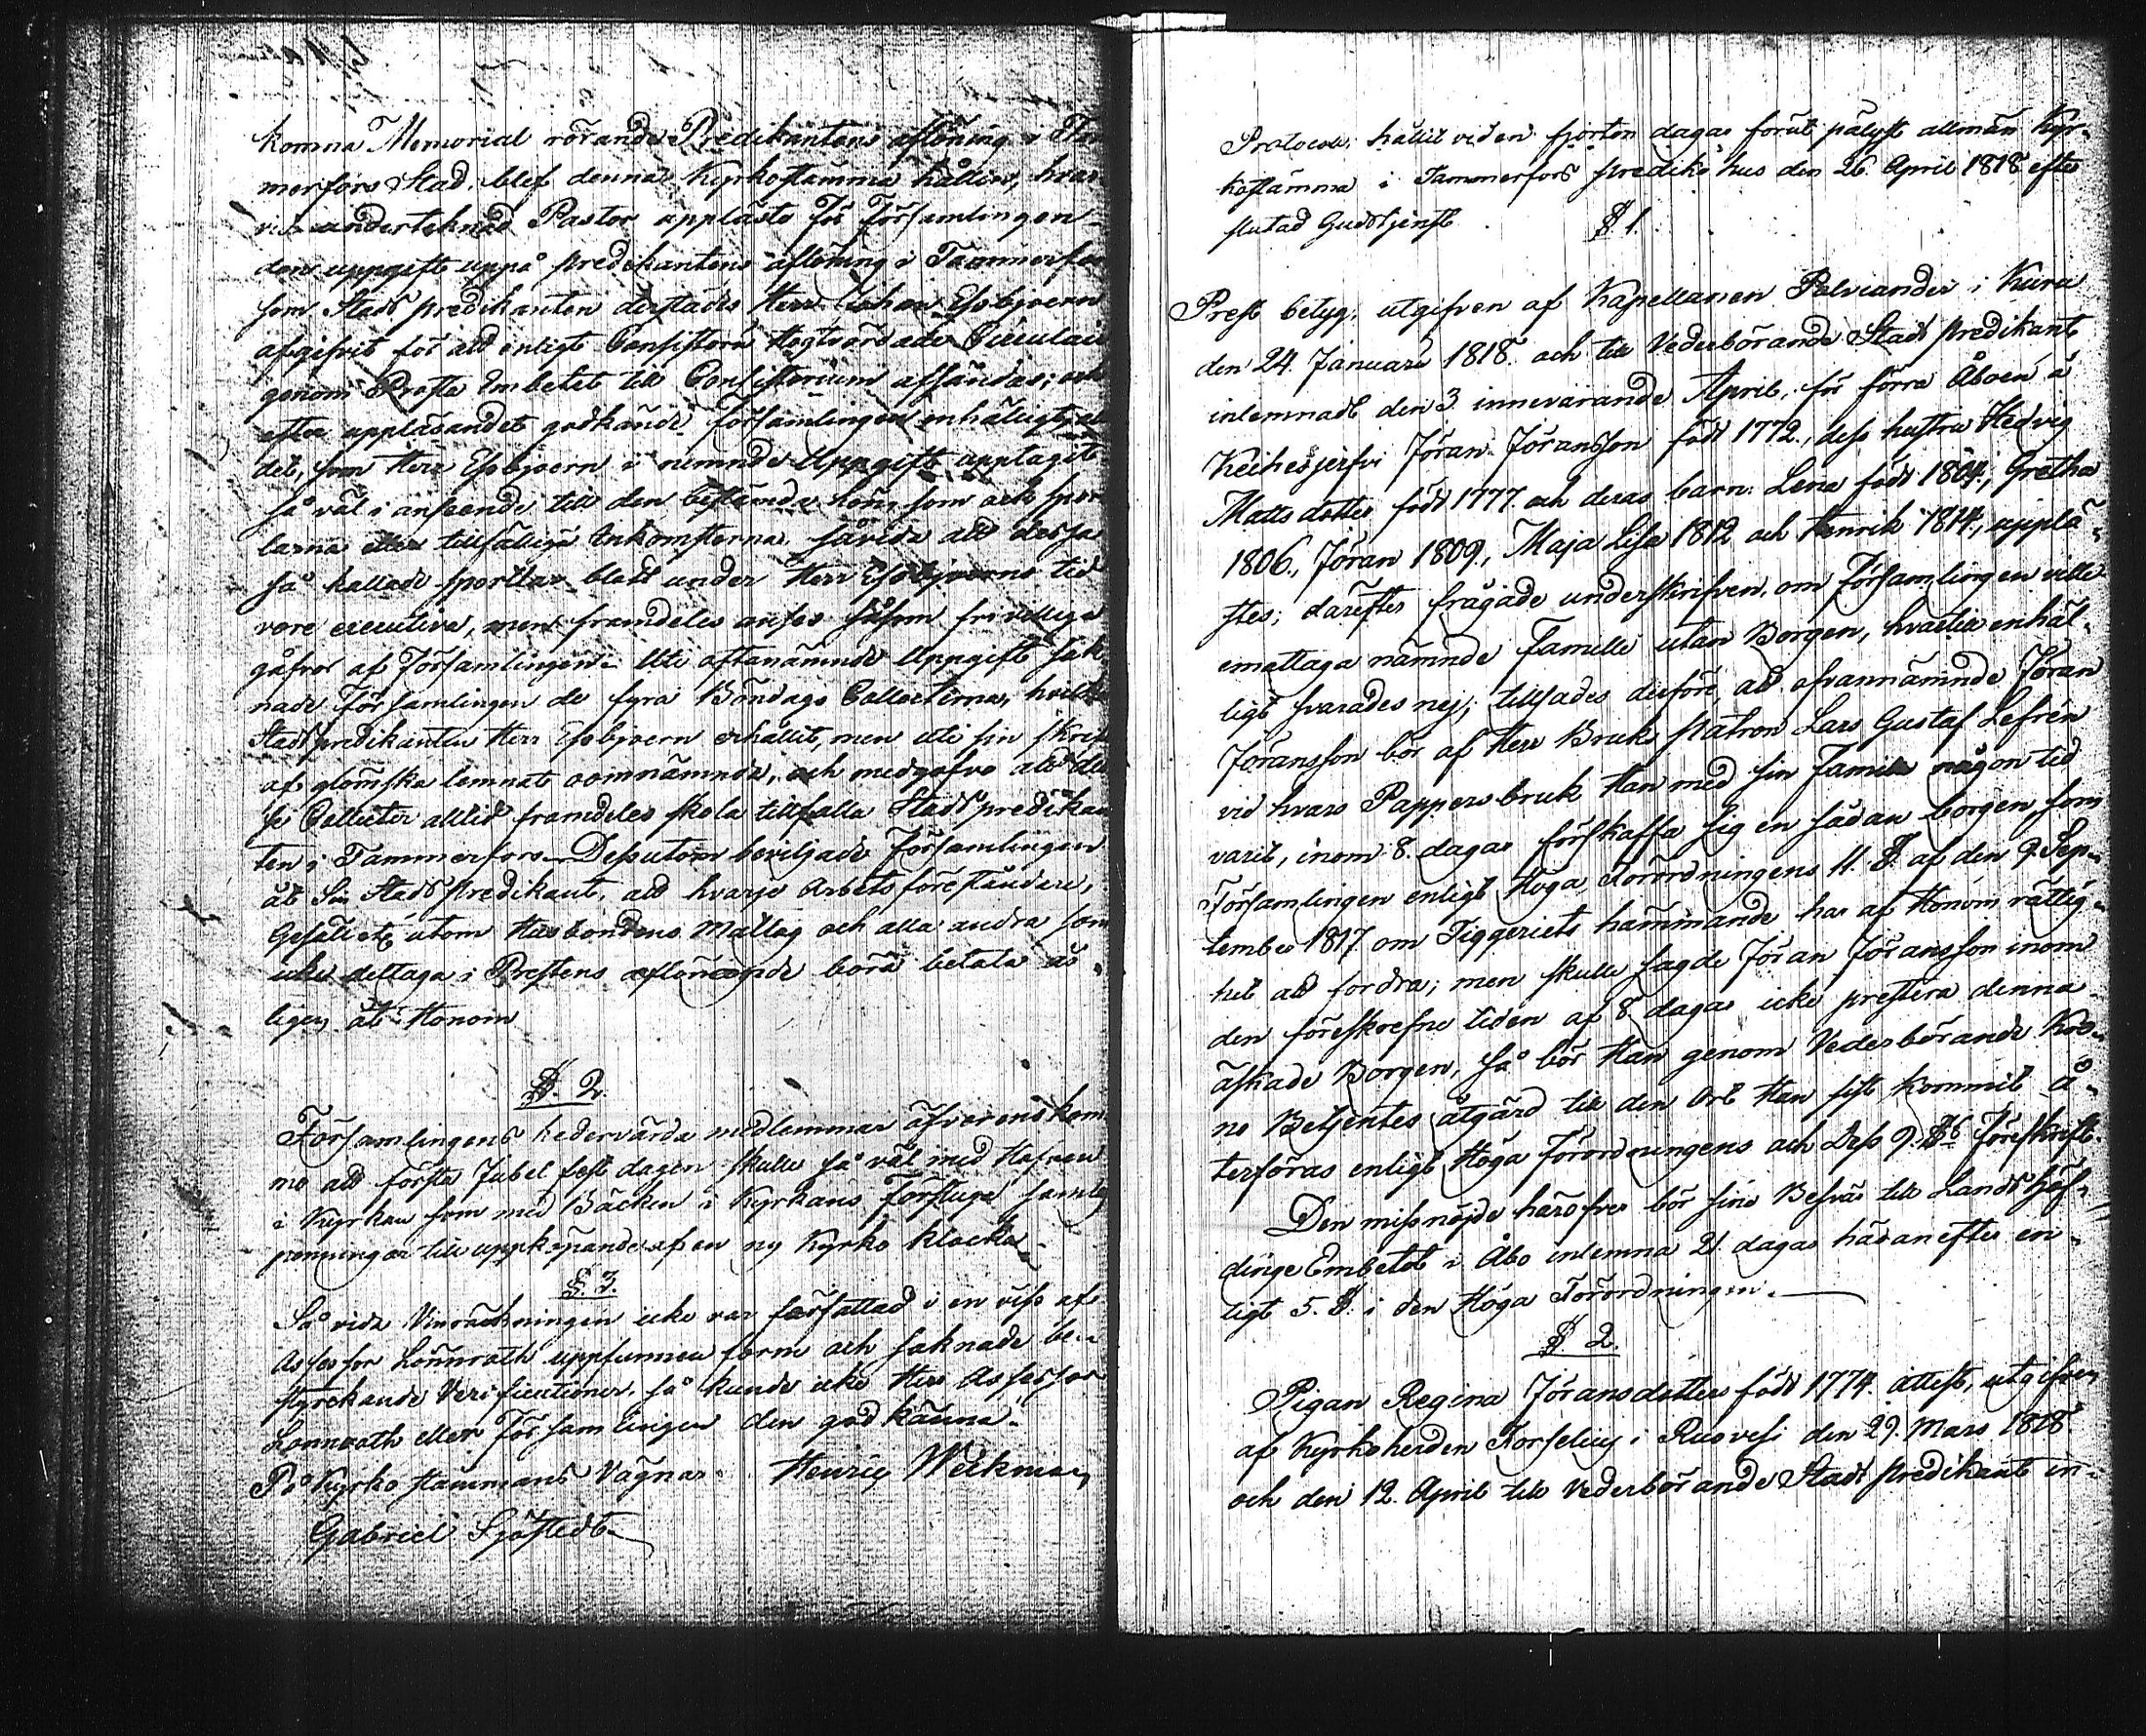 komna Memorial rörande Predikantens aflöning i Tam
merfors Stad, blef denna Kyrkostämma hållen, hvar
vid undertecknad Pastor upplaste för Församlingen
den uppgift uppå predikantens aflöning i Tammerfors
som Stads predikanten derstädes Herr Johan Essbjoern
afgifvit för att enligt Consistorii Högtvördade Circulair
genom Prosta Embetet till Consistorium afsändas; och
efter uppläsandet godkände församlingen enhälligt, allt
det, som Herr Essbjoern i nemnde Uppgift upptagit
så väl i anseende till den bestämda lönen som ock spor
larna eller tillfälliga Inkomsterna, såvida att dessa
så kallade sportlar blott under Herr Essbjoerns tid
vore executiva, men framdeles anses såsom frivilliga
gåfvor af Församlingen. Uti oftanämnde Uppgift sak
nade Församlingen de fyra Böndags Collecterna, hvilka
Stadspredikanten Herr Essbjoern erhållit, men uti sin skrift
af glömska lemnat oomnämnda, och medgafvs att des
se Collecter alltid framdeles skola tillfalla Stadspredikan
ten i Tammerfors. Dessutom beviljade Församlingen
åt Sin Stadspredikant, att hvarje Arbetsföreståndare,
Gesäll etc utom Husbondens Matlag och alla andra som
icke deltaga i Prestens aflönande böra betala år
ligen åt Honom
§. 2.
Församlingens hedervärda medlemmar öfverenskom
mo att första Jubel fest dagen skulle så väl med Hofven
i Kyrkan som med Bäcken i Kyrkans Förstuga samlas
penningar till uppköpande af en ny Kyrko klocka.
§. 3.
Så vida Vinräckningen icke var författad i en viss af
Assessor Lönnroth uppfunnen form och saknade be-
styrckande Verificationer, så kunde icke Herr Assessor
Lönnroth eller Församlingen den godkänna.
På Kyrko stämmans Vägnar. Henric Weckman
Gabriel Sjöstedt
Protocoll, hållit vid en fjorton dagar förut pålyst allmän Kyr-
kostämma i Tammerfors predikohus den 26 April 1818 efter
slutad Gudstjenst
§ 1.
Prest betyg, utgifven af Kapellanen Polviander i Kuru
den 24. Januari 1818. och till Vederbörande Stads predikant
inlemnadt den 3. innevarande April, för förra Åboen å
Keihesjerfvi Jöran Jöransson född 1772., dess hustru Hedvig
Matts dotter född 1777. och deras barn: Lena född 1804., Gretha
1806., Jöran 1809., Maja Lisa 1812 och Henrik 1814., upplä-
stes; därefter frågade underskrifven, om Församlingen ville
emottaga nämnde Familie utan Borgen, hvartill enhäl-
ligt svarades nej; tillsades derföre, att ofvannämnde Jöran
Jöransson bör af Herr Bruks patron Lars Gustaf Lefrén
vid hvars Pappersbruk Han med sin Familie någon tid
varit, inom 8. dagar förskaffa sig en sådan borgen, som
Församlingen enligt Höga Förordningens 11. §. af den 9. Sep-
tember 1817 om Tiggeriets hämmande har af Honom rättig-
het att fordra; men skulle sagde Jöran Jöransson inom
den föreskrefne tiden af 8 dagar icke prestera denna
äskade Borgen, så bör Han genom Vederbörande Kro-
no Betjentes åtgärd till den Ort Han sist kommit å-
terföras enligt Höga Förordningens och Dess 9. §s Föreskrift.
Den missnöjde häröfver bör sine Besvär till Landshöf-
dinge Embetet i Åbo inlemna 21 dagar häranefter en-
ligt 5. §. i den Höga Förordningen.
§ 2.
Pigan Regina Jöransdotters född 1774. attest, utgifven
af Kyrkoherden Forselius i Ruovesi den 29. Mars 1818
och den 12. April till Vederbörande Stads predikant in-